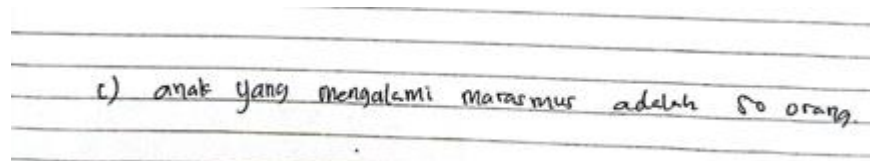 c) anak yang mengalami marasmus adalah 50 orang.